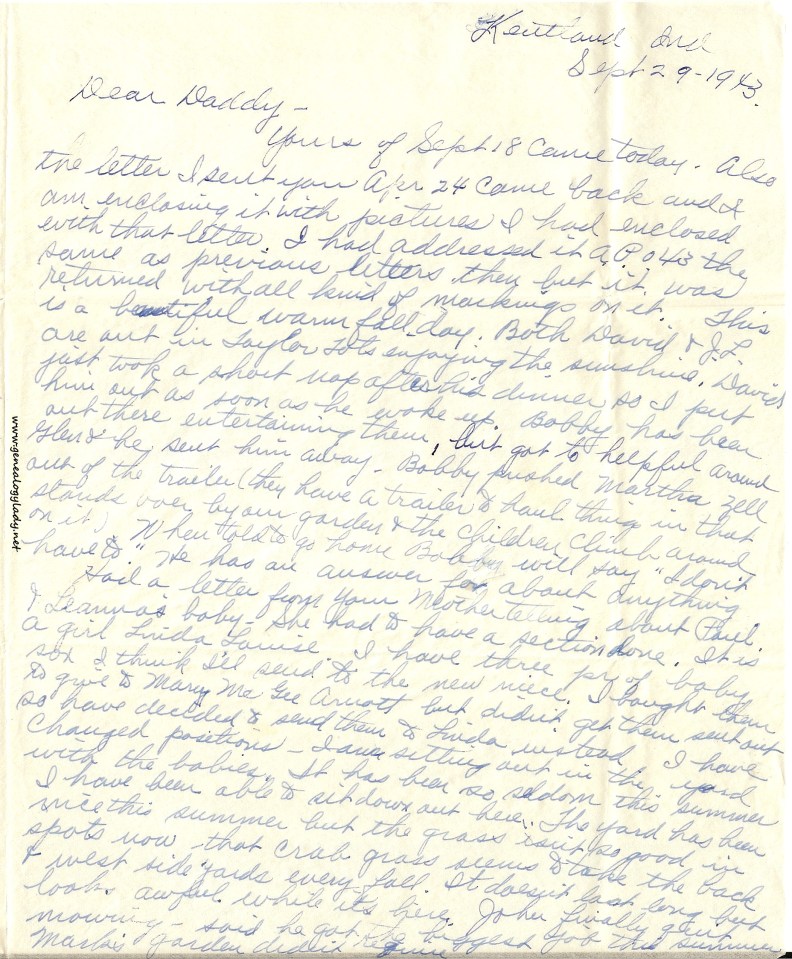 Kentland Ind
Sept 29-1943.
Dear Daddy-
Yours of Sept 18 came today. Also
the letter I sent you Apr 24 came back and I
am enclosing it with pictures I had enclosed
with that letter. I had addressed it A.P.O 43 the
same as previous letters then but it was
returned with all kind of markings on it. This
is a beautiful warm fall day. Both David & J.L.
are out in Taylor Tots enjoying the sunshine. David
just took a short nap after his dinner so I put
him out as soon as he woke up. Bobby has been
out there entertaining them, but got to helpful around
Glen & he sent him away - Bobby pushed Martha Zell
out of the trailer (they have a trailer to haul thing in that
stands over by our garden & the children climb around
on it) When told to go home Bobby will say "I don't
have to" He has an answer for about anything
Had a letter from your Mother telling about Paul
& Leanna's baby - She had to have a section done. It is
a girl Linda Louise I have three pr of baby
sox I think I'll send to the new niece. I bought them
to give to Mary Mc Gee Arnott but didn't get them sent out
so have decided to send them to Linda instead. I have
changed positions - I am sitting out in the yard
with the babies. It has been so seldom this summer
I have been able to sit down out here. The yard has been
nice this summer but the grass isn't so good in
spots now - that crab grass seems to take the back
& west side yards every fall. It doesn't last long but
looks awful while it's here. John finally quit
mowing - said he got the biggest job this summer
garden didn't
www.genealogylady.net